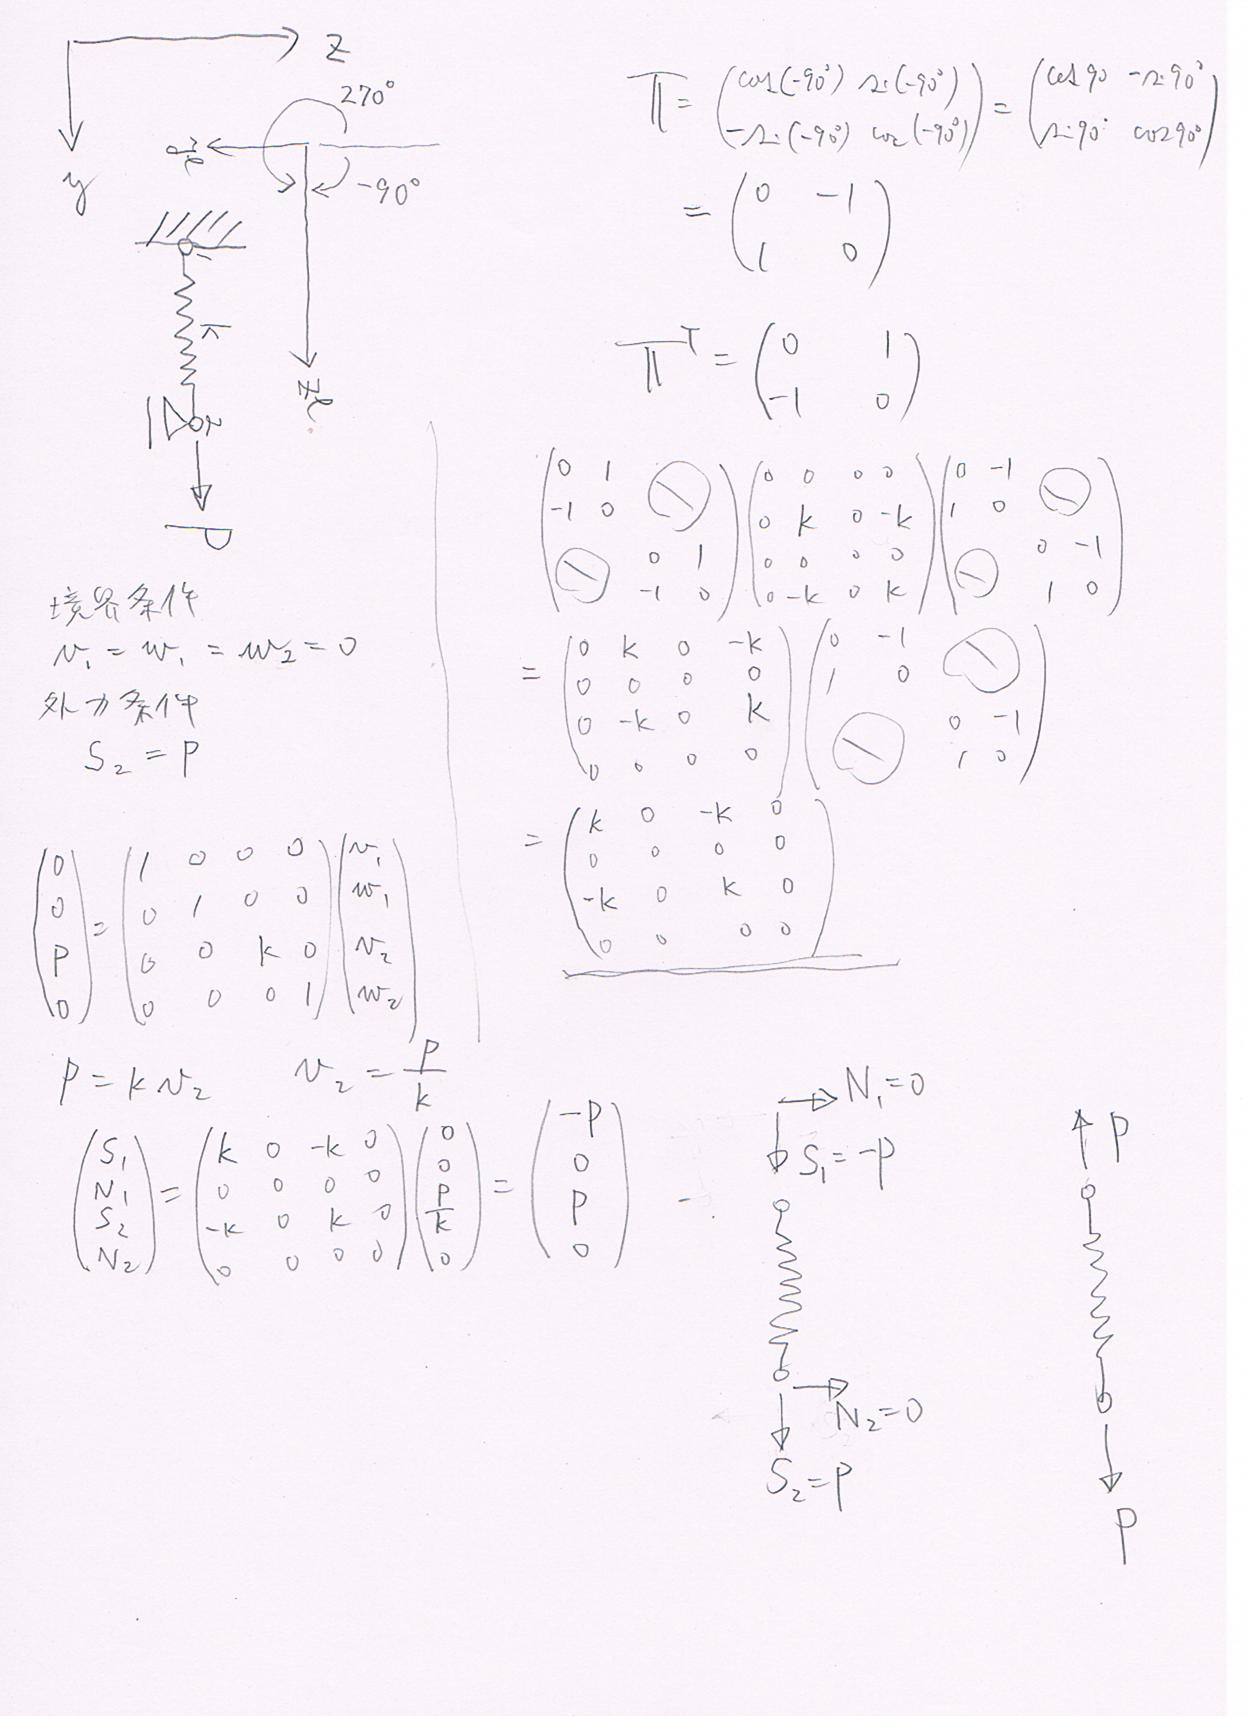 z
y
270°
-90°
yℓ
zℓ
1
k
2
P
境界条件
v₁ = w₁ = w₂ = 0
外力条件
S₂ = P
(0 0 P 0) = (1 0 0 0 / 0 1 0 0 / 0 0 k 0 / 0 0 0 1) (v₁ w₁ v₂ w₂)
P = k v₂  v₂ = P/k
(S₁ N₁ S₂ N₂) = (k 0 -k 0 / 0 0 0 0 / -k 0 k 0 / 0 0 0 0) (0 0 P/k 0) = (-P 0 P 0)
T = (cos(-90°) sin(-90°) / -sin(-90°) cos(-90°)) = (cos90 -sin90° / sin90° cos90°)
= (0 -1 / 1 0)
Tᵀ = (0 1 / -1 0)
(0 1 0 / -1 0 / 0 0 1 / -1 0) (0 0 0 0 / 0 k 0 -k / 0 0 0 0 / 0 -k 0 k) (0 -1 0 / 1 0 / 0 0 -1 / 1 0)
= (0 k 0 -k / 0 0 0 0 / 0 -k 0 k / 0 0 0 0) (0 -1 0 / 1 0 / 0 0 -1 / 1 0)
= (k 0 -k 0 / 0 0 0 0 / -k 0 k 0 / 0 0 0 0)
N₁=0
S₁=-P
N₂=0
S₂=P
P
P